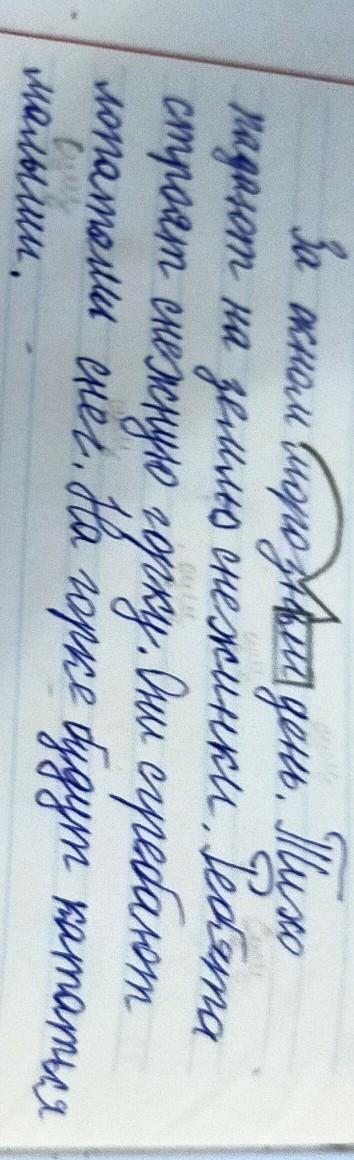 За окном морозный день. Тихо
падают на землю снежинки. Ребята
строят снежную горку. Они сгребают
лопатами снег. На горке будут кататься
малыши.